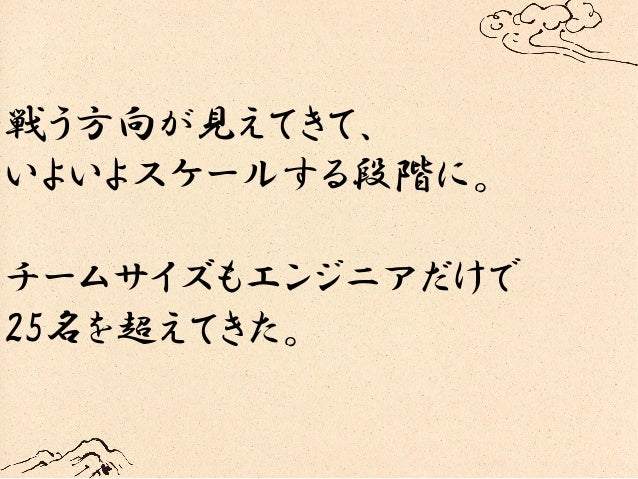 戦う方向が見えてきて、
いよいよスケールする段階に。
チームサイズもエンジニアだけで
25名を超えてきた。